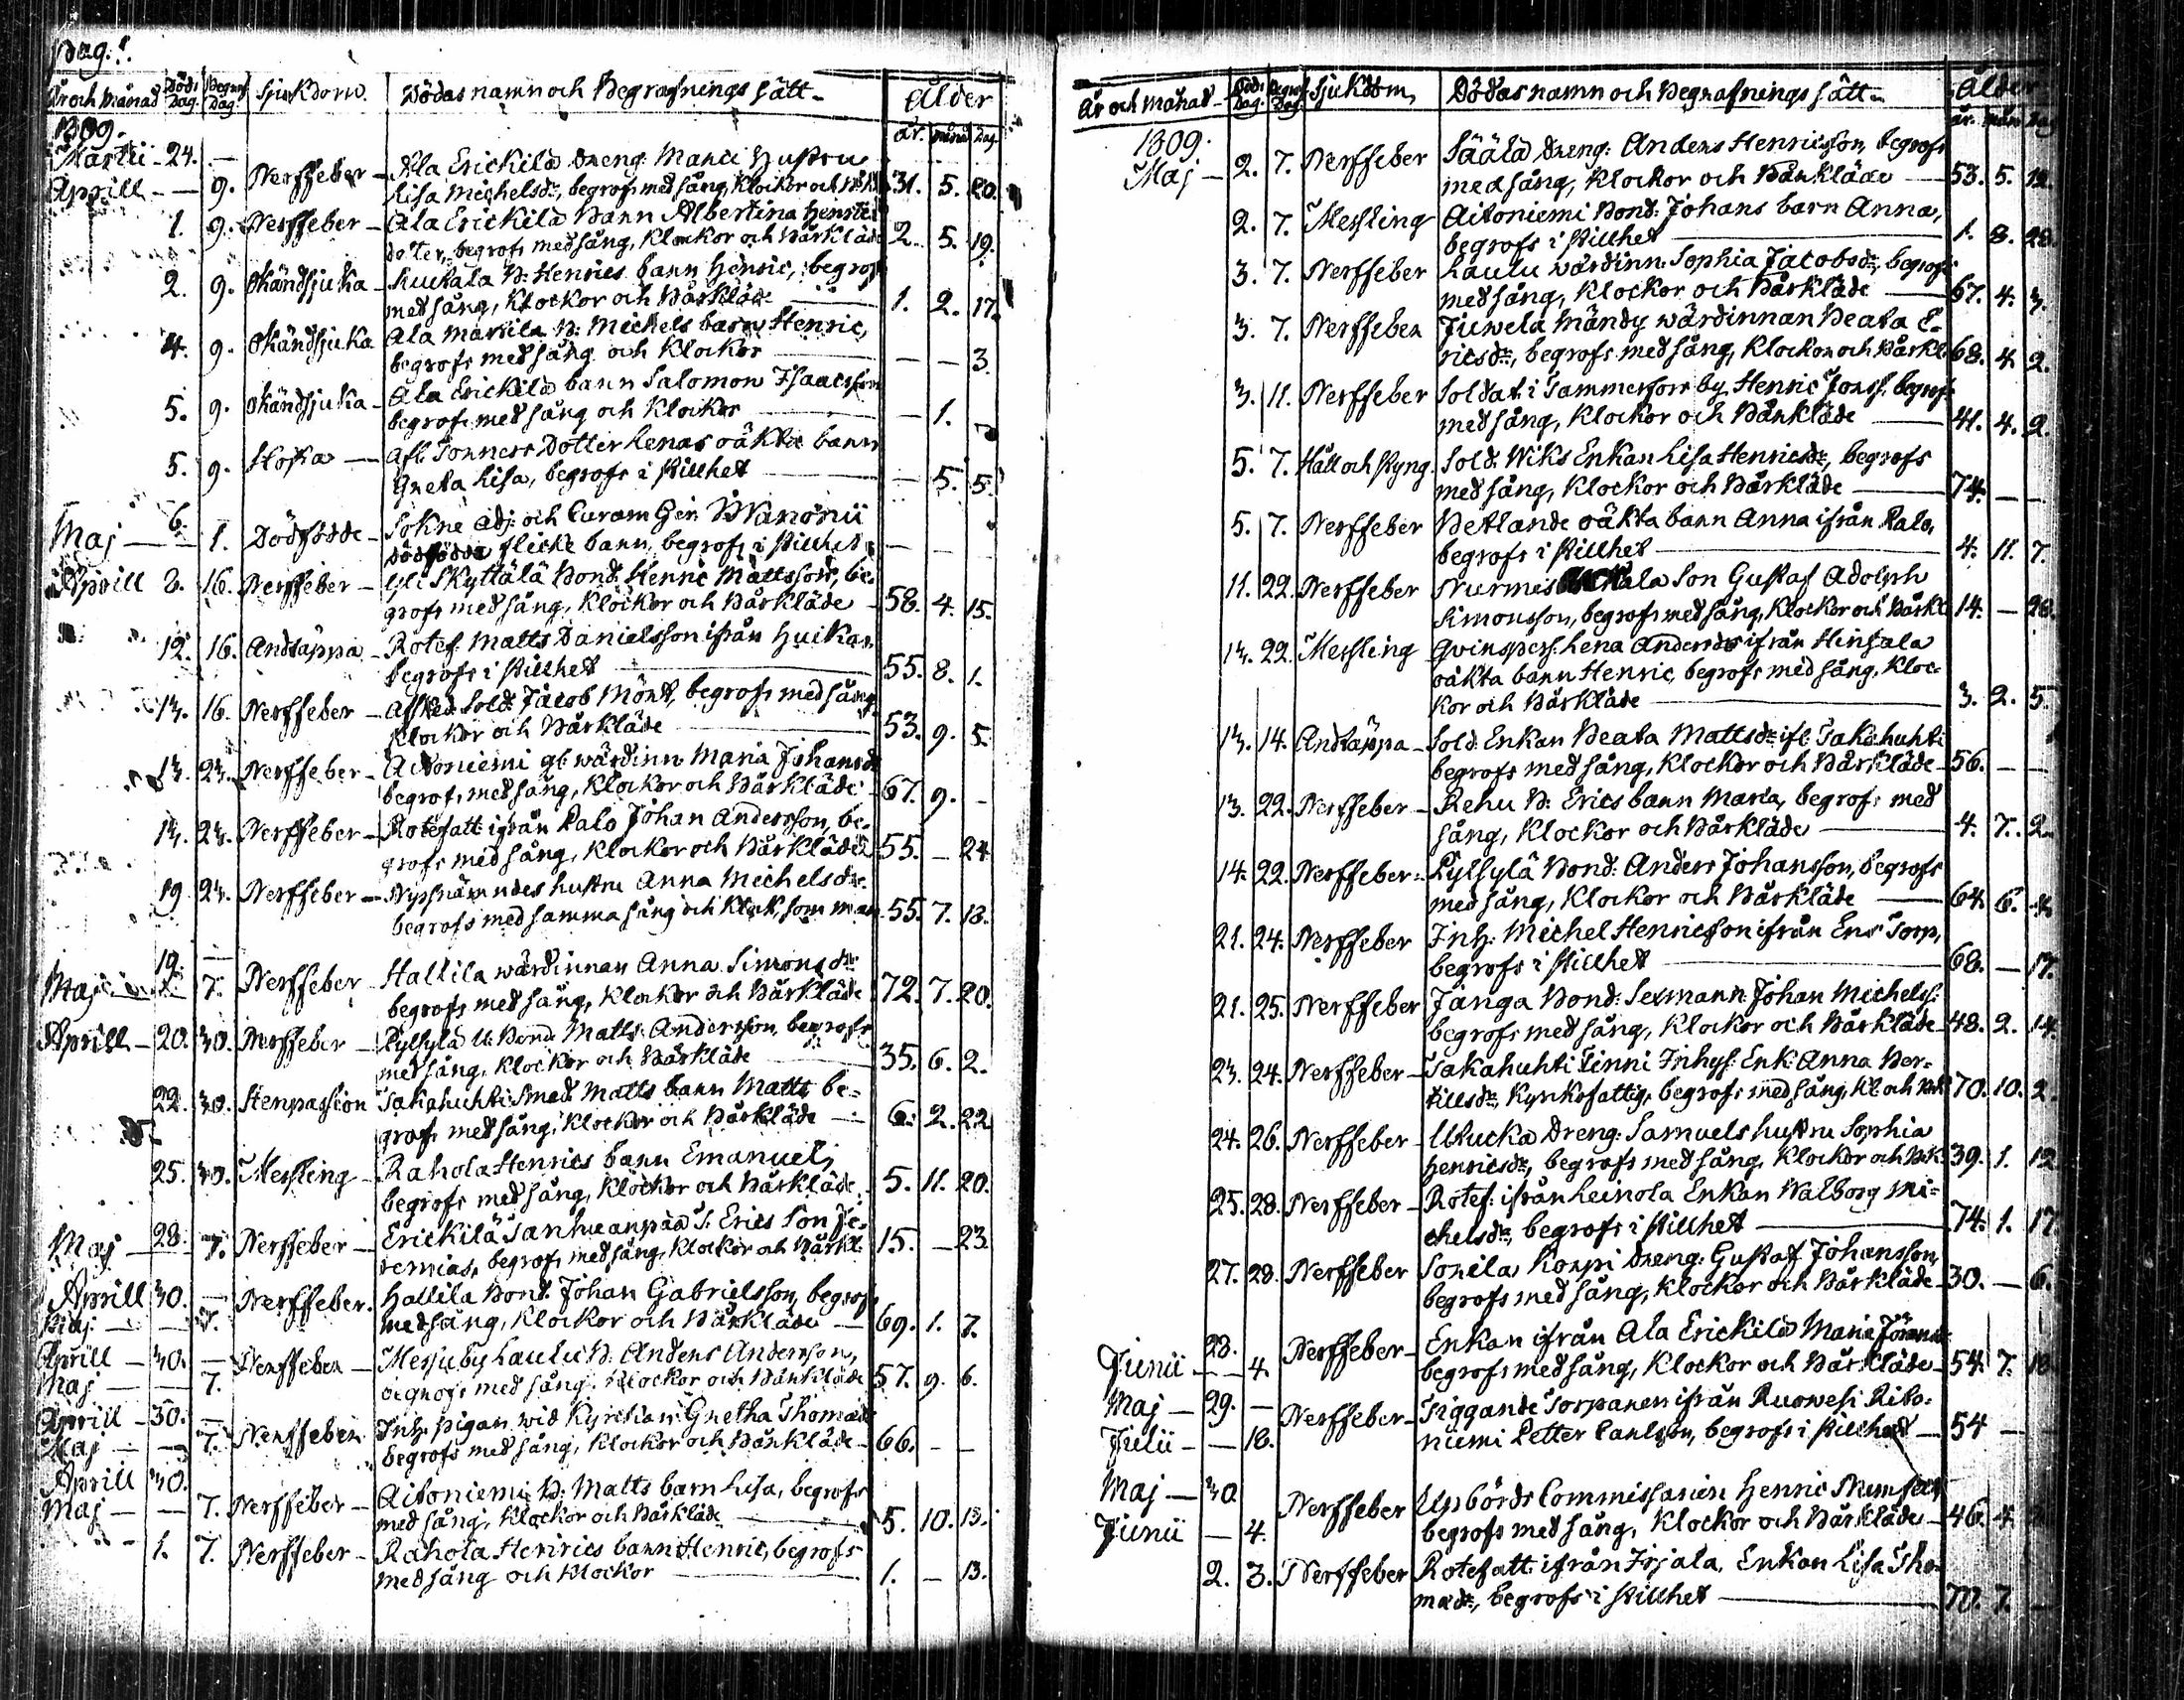 Pag:
År och Månad Döds Dag. Begrafn Dag. Sjukdom. Dödas namn och Begrafnings sätt- Ålder
1809. år. månad Dag.
Martii - 24. — Nerffeber - Ala Erickilä Dreng: Mattz Hustru
Aprill - — 9. Lisa Michelsdr, begrofs med sång, Klockor och 31. 5. 20.
1. 9. Nerffeber - Ala Erickilä Barn Albertina Henrics
doter, begrofs med sång, Klockor och Bårkläde 2. 5. 19.
2. 9. Okänd sjuka - B: Henrics barn Henric, begrofs
med sång, Klockor och Bårkläde 1. 2. 17.
4. 9. Okänd sjuka Ala Marttila B: Michels barn Henric,
begrofs med sång och Klockor — — 3.
5. 9. Okänd sjuka - Ala Erickilä barn Salomon Isaacsson
begrofs med sång och Klockor — 1.
5. 9. Hosta — Dotter Lenas oäkta barn
Greta Lisa, begrofs i stillhet — 5. 5.
6. Sokne Adj: och Curam Ger:
Maj — — 1. Dödfödde - dödfödda flicke barn, begrofs i stillhet — — —
Aprill 8. 16. Nerffeber - Yli Skyttälä Bond: Henric Mattsson, be-
grofs med sång, Klockor och Bårkläde 58. 4. 15.
12. 16. Andtäppa - Rotef: Matts Danielsson ifrån Huikas
begrofs i stillhet 55. 8. 1.
13. 16. Nerffeber - Afsked Sold: Jacob Mört, begrofs med sång,
Klockor och Bårkläde 53. 9. 5.
13. 23. Nerffeber - Aitoniemi gl: wärdinn Maria Johansdr
begrofs med sång, Klockor och Bårkläde 67. 9. -
13. 23. Nerffeber - Rotefatt: ifrån Palo Johan Andersson, be-
grofs med sång, Klockor och Bårkläde 55. — 24
19 23. Nerffeber - Nyssnämndes hustru Anna Michelsdr
begrofs med samma sång och Klock, som man 55. 7. 13.
19. —
Maj 7. Nerffeber - Hallila wärdinnan Anna Simonsdr
begrofs med sång, Klockor och Bårkläde 72. 7. 20.
Aprill - 20. 30. Nerffeber - Pylsylä U: Bond: Matts Andersson, begrofs
med sång, Klockor och Bårkläde 35. 6. 2.
22. 30. Stenpassion Takahuhti Smed: Matts barn Matts be-
grofs med sång, Klockor och Bårkläde 6. 2. 22
25. 30. Messling - Rahola Henrics barn Emanuel,
begrofs med sång, Klockor och Bårkläde 5. 11. 20.
Maj - 28. 7. Nerffeber - Erickilä T: Erics Son Je-
remias, begrofs med sång, Klockor och Bårkl: 15. — 23
Aprill 30. — Nerffeber. Hallila Bond: Johan Gabrielsson, begrofs
Maj — — 7. med sång, Klockor och Bårkläde 69. 1. 7.
Aprill - 30. — Nerffeber - Messuby Laulu B: Anders Andersson,
Maj — — 7. begrofs med sång, Klockor och Bårkläde 57. 9. 6.
Aprill - 30. — Nerffeber Inh: pigan wid Kyrckan Gretha Thomasdr
Maj — — 7. begrofs med sång, Klockor och Bårkläde - 66. - -
Aprill 30. Aitoniemi B: Matts barn Lisa, begrofs
Maj — — 7. Nerffeber - med sång, Klockor och Bårkläde 5. 10. 13.
1. 7. Nerffeber - Rahola Henrics barn Henric, begrofs
med sång och Klockor 1. — 13.
År och Månad - Döds Dag. Begraf Dag Sjukdom, Dödas namn och Begrafnings sätt - Ålder
år. mån. Dag
1809.
Maj - 2. 7. Nerffeber Säälä Dreng: Anders Henricsson, begrofs
med sång, Klockor och Bårkläde 53. 5. 12.
2. 7. Messling Aitoniemi Bond: Johans barn Anna,
begrofs i stillhet 1. 8. 28.
3. 7. Nerffeber Laulu wärdinn: Sophia Jacobsdr, begrofs
med sång, Klockor och Bårkläde 67. 4. 3.
3. 7. Nerffeber Juwela Mändy wärdinnan Beata E-
ricsdr, begrofs med sång, Klockor och Bårkl 68. 4. 2.
3. 11. Nerffeber Soldat: i Tammerfors by Henric Jonss. begrofs
med sång, Klockor och Bårkläde 41. 4. 2.
5. 7. Håll och styng. Sold: Wiks Enkan Lisa Henricsdr, begrofs
med sång, Klockor och Bårkläde 74. — —
5. 7. Nerffeber Betlande oäkta barn Anna ifrån Palo,
begrofs i stillhet 4. 11. 7.
11. 22. Nerffeber Nurmis Son Gustaf Adolph
Simonsson, begrofs med sång, Klockor och Bårkl 14. — 28.
13. 22. Messling Qvinspers: Lena Andersdr ifrån Hirsala
oäkta barn Henric, begrofs med sång, Kloc-
kor och Bårkläde 3. 2. 5.
13. 14. Andtäppa - Sold: Enkan Beata Mattsdr if: Takahuhti
begrofs med sång, Klockor och Bårkläde 56. — —
13. 22. Nerffeber - Rehu B: Erics barn Maria, begrofs med
sång, Klockor och Bårkläde 4. 7. 2.
14. 22. Nerffeber - Pylsylä Bond: Anders Johansson, begrofs
med sång, Klockor och Bårkläde 64. 6. 4.
21. 24. Nerffeber Inh: Michel Henricsson ifrån Ens Torp,
begrofs i stillhet 68. — 17.
21. 25. Nerffeber Janga Bond: Sexmann: Johan Michelss:
begrofs med sång, Klockor och Bårkläde 48. 2. 14.
23. 24. Nerffeber - Takahuhti Pinni Inhys: Enk: Anna Ber-
tillsdr, Kyrksfattig, begrofs med sång, Kl och 70. 10. 2.
24. 26. Nerffeber - Utucka Dreng: Samuels hustru Sophia
Henricsdr, begrofs med sång, Klockor och B.k. 39. 1. 12
25. 28. Nerffeber - Rotef: ifrån Leinola Enkan Walborg Mi-
chelsdr, begrofs i stillhet 74. 1. 17.
27. 28. Nerffeber Sorila Korpi Dreng: Gustaf Johansson,
begrofs med sång, Klockor och Bårkläde 30. — 6.
28. Nerffeber - Enkan ifrån Ala Erickilä Maria
Junii - — 4. begrofs med sång, Klockor och Bårkläde 54. 7. 18
Maj - 29. — Nerffeber - Tiggande Torparen ifrån Ruowesi Rito-
Julii - — 18. niemi Petter Paulsson, begrofs i stillhet - 54 — —
Maj - 30. Nerffeber Upbörds Commissarien Henric
Junii — 4. begrofs med sång, Klockor och Bårkläde - 46. 4.
2. 3. Nerffeber Rotefatt: ifrån Irjala, Enkan Lisa Tho-
masdr, begrofs i stillhet 77. 7. —